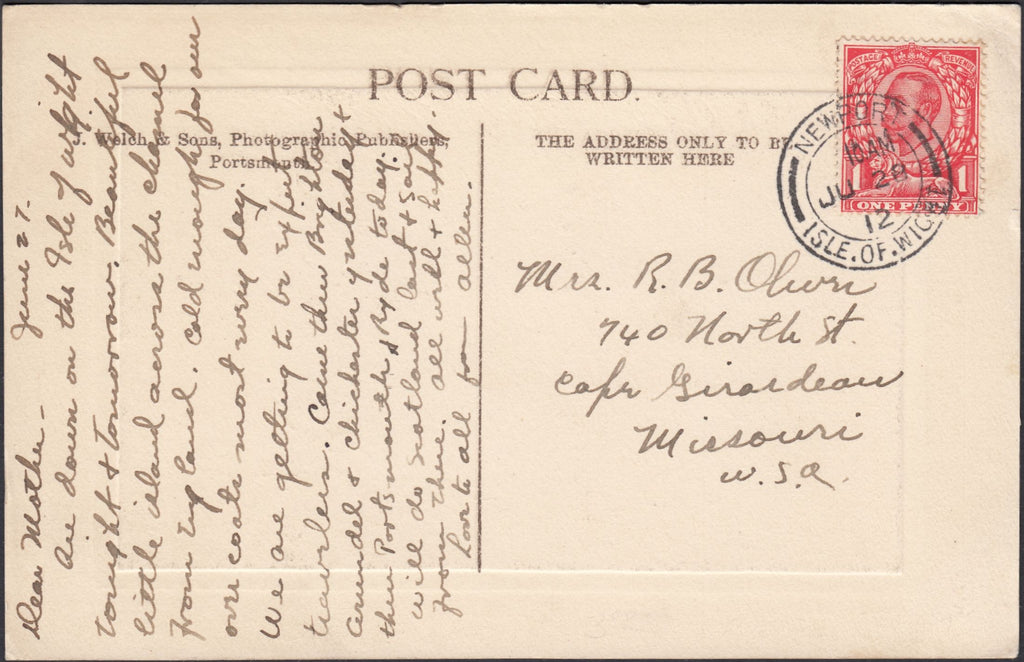 POST CARD.
J. Welch & Sons, Photographic Publishers,
Portsmouth.
THE ADDRESS ONLY TO BE
WRITTEN HERE
POSTAGE REVENUE
1 1
ONE PENNY
NEWPORT
10 AM
JU 28
12
ISLE.OF.WIGHT
June 27.
Dear Mother –
Are down on the Isle of Wight
tonight & tomorrow. Beautiful
little island across the channel
from England. Cold enough for our
over coats most every day.
We are getting to be expert
travelers. Came thru Brighton
Arundel & Chichester yesterday &
thru Portsmouth & Ryde today.
Will do Scotland last & sail
from there. All well & happy.
Love to all from allen.
Mrs. R. B. Oliver
740 North St.
Cape Girardeau
Missouri
U.S.A.